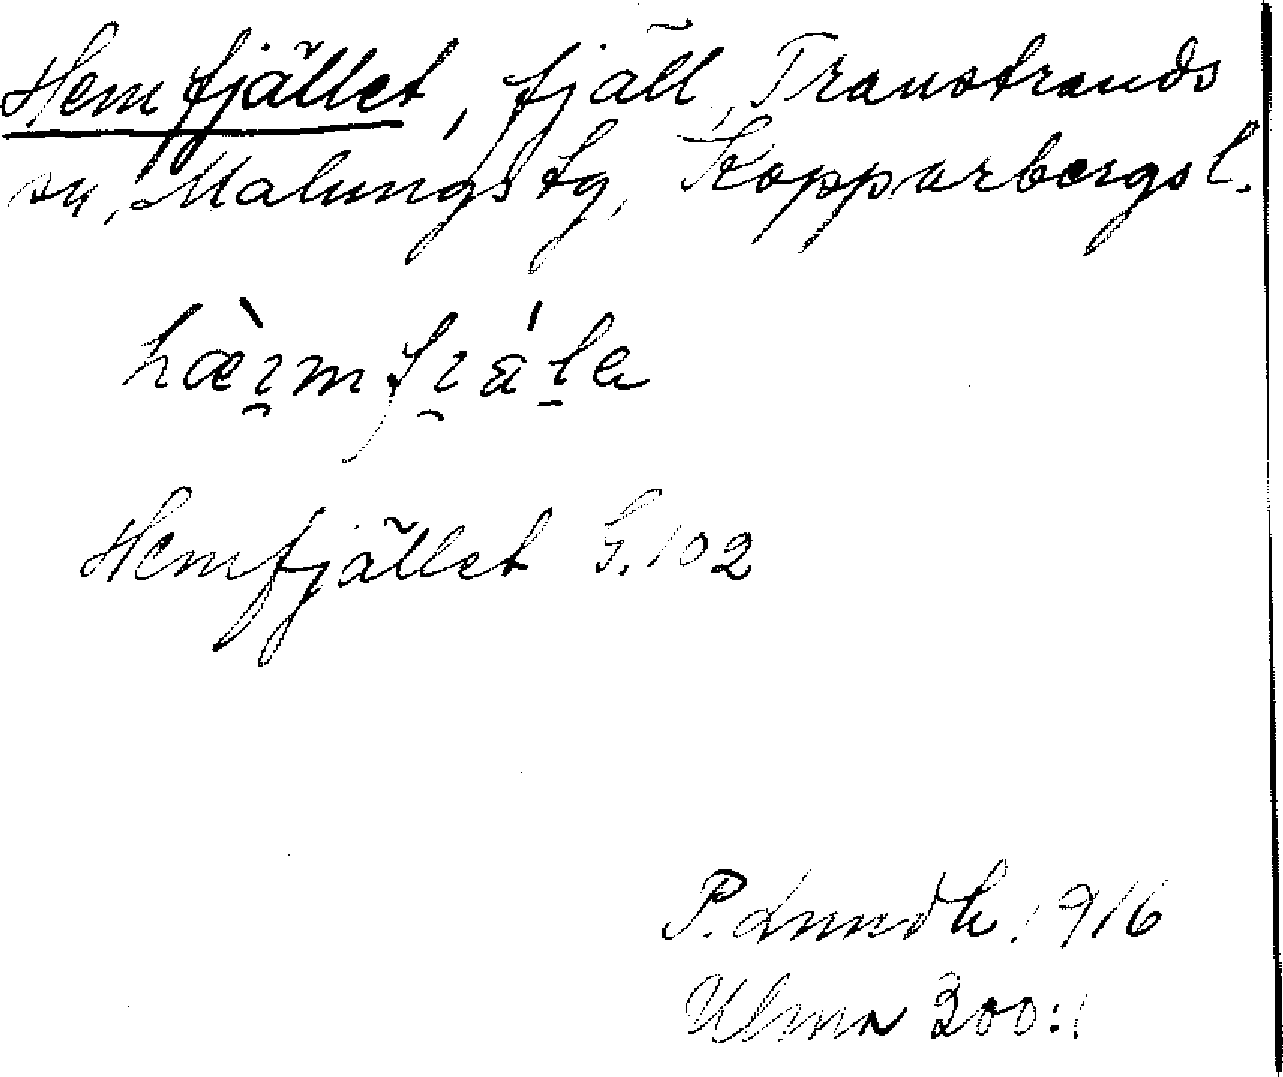 Hemfjället, fjäll, Transtrands
sn, Malungs tg, Kopparbergs l.
Hemfjället G. 102
P. Lundh. 1916
Ulma 300:1